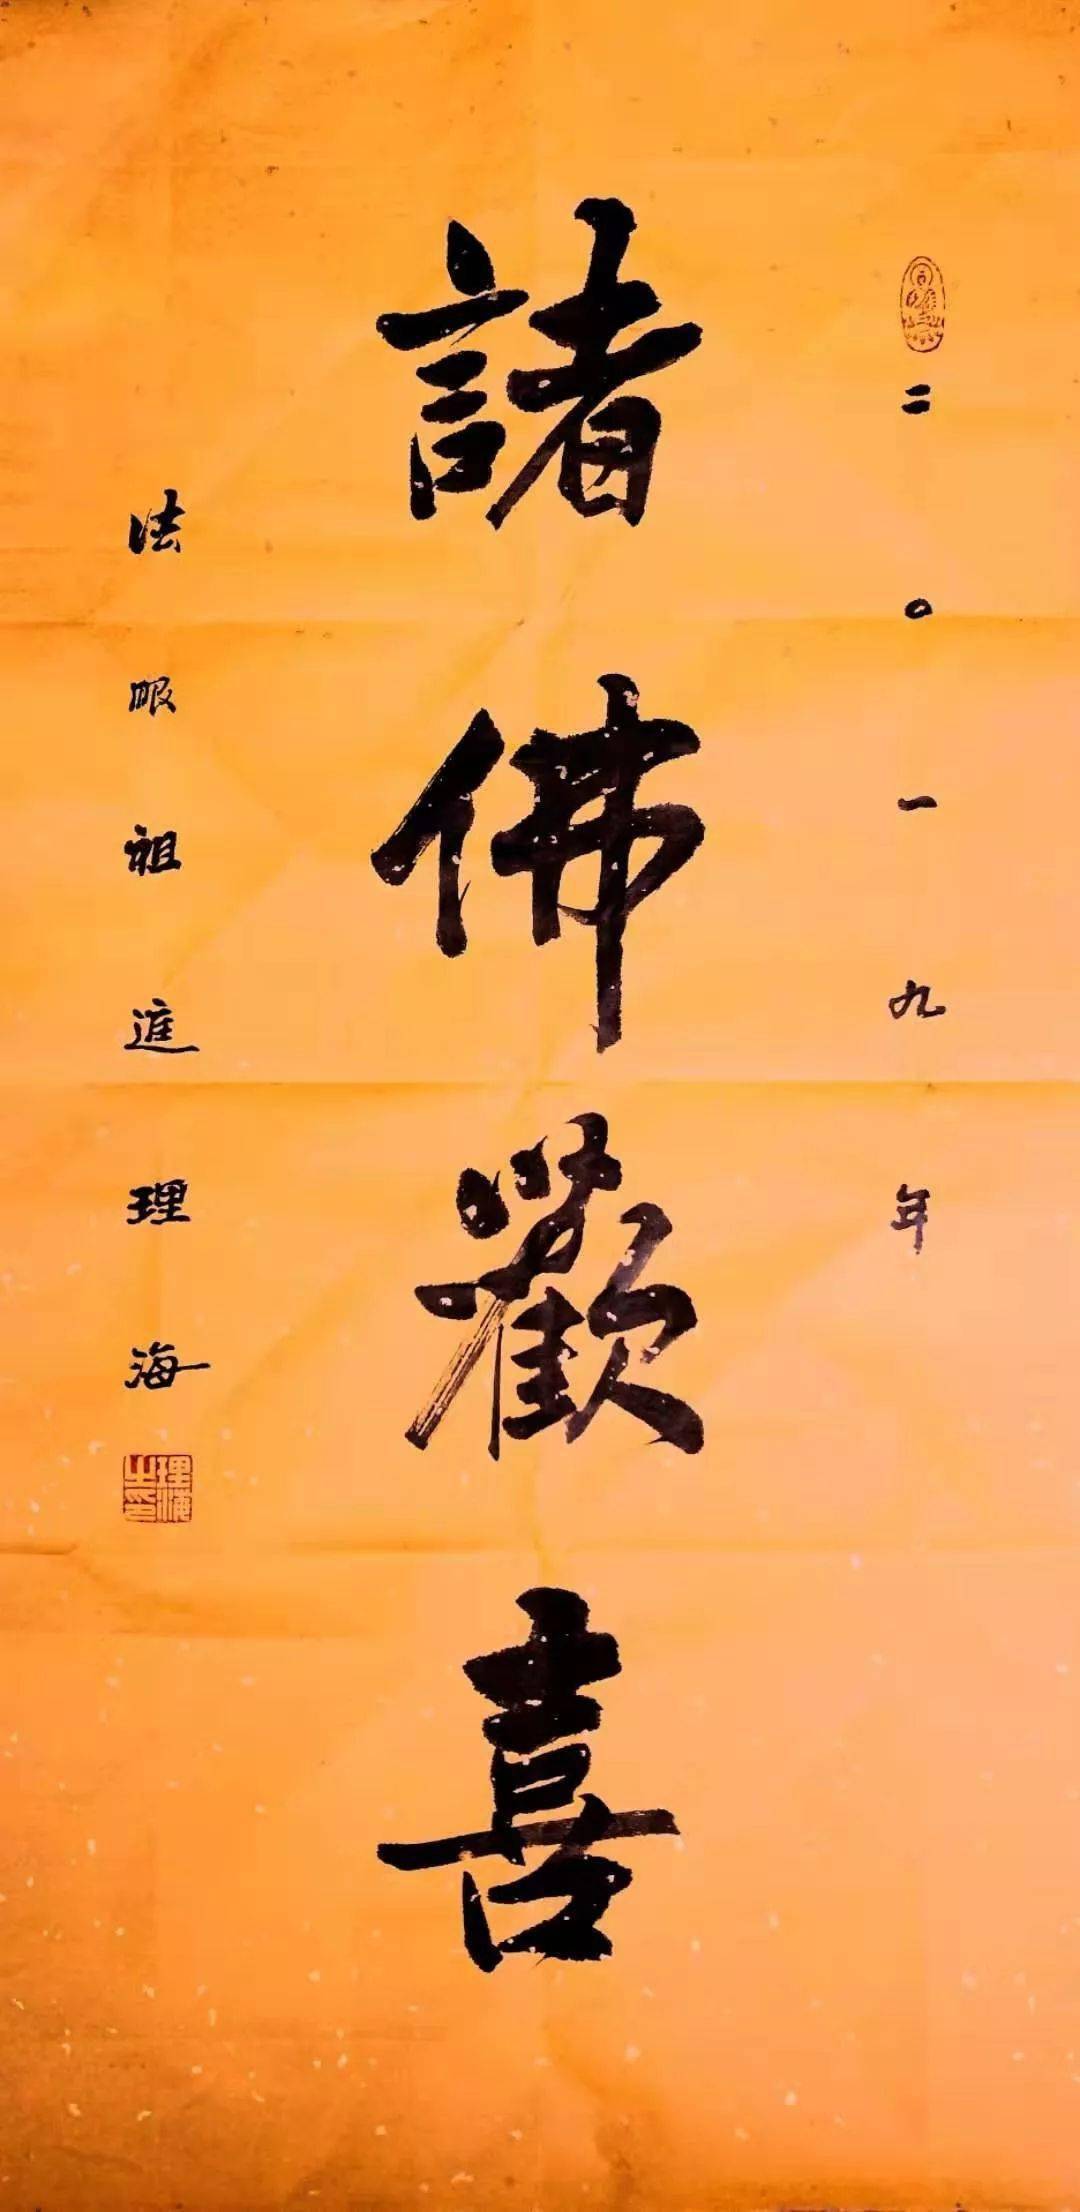 二〇一九年
諸佛歡喜
法眼祖遮理海
理海之印